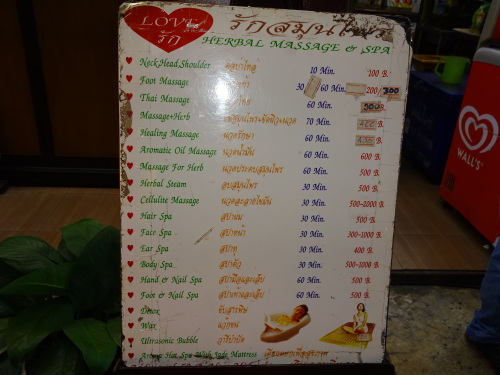 LOVE รักสมุนไพร
รัก HERBAL MASSAGE & SPA
Neck Head Shoulder 10 Min. 100 B.
Foot Massage 30 60 Min. 200 300
Thai Massage 60 Min. 300 B.
Massage+Herb 70 Min.
Healing Massage นวดรักษา 60 Min.
Aromatic Oil Massage นวดน้ำมัน 60 Min. 600 B.
Massage For Herb นวดประคบสมุนไพร 60 Min. 500 B.
Herbal Steam อบสมุนไพร 30 Min. 500 B.
Cellulite Massage นวดสลายไขมัน 30 Min. 500-2000 B.
Hair Spa สปาผม 30 Min. 500 B.
Fair Spa สปาหน้า 30 Min. 300-1000 B.
Ear Spa สปาหู 30 Min. 400 B.
Body Spa สปาตัว 30 Min. 500-1000 B.
Hand & Nail Spa สปามือและเล็บ 60 Min. 500 B.
Foot & Nail Spa สปาเท้าและเล็บ 60 Min. 500 B.
Detox ขับสารพิษ
Wax แว๊กซ์
Ultrasonic Bubble วารีบำบัด
Hot Spa With Jade Mattress
WALL'S